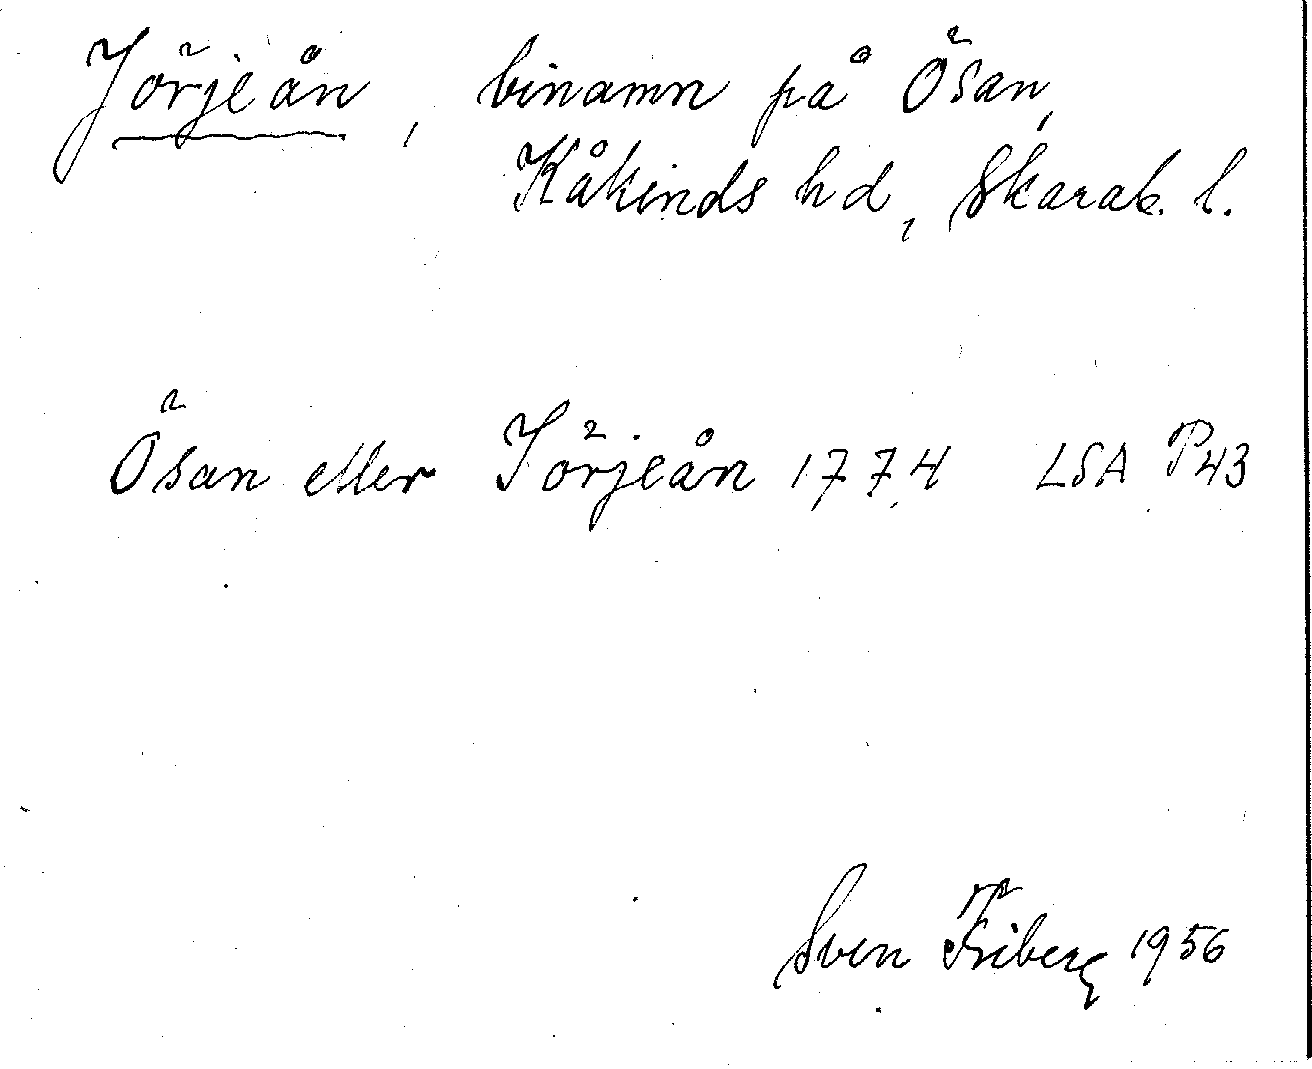 Jörjeån, binamn på Ösan,
Kåkinds hd, Skarab. l.
Ösan eller Jörjeån 1774 LSA P43
Sven Friberg 1956